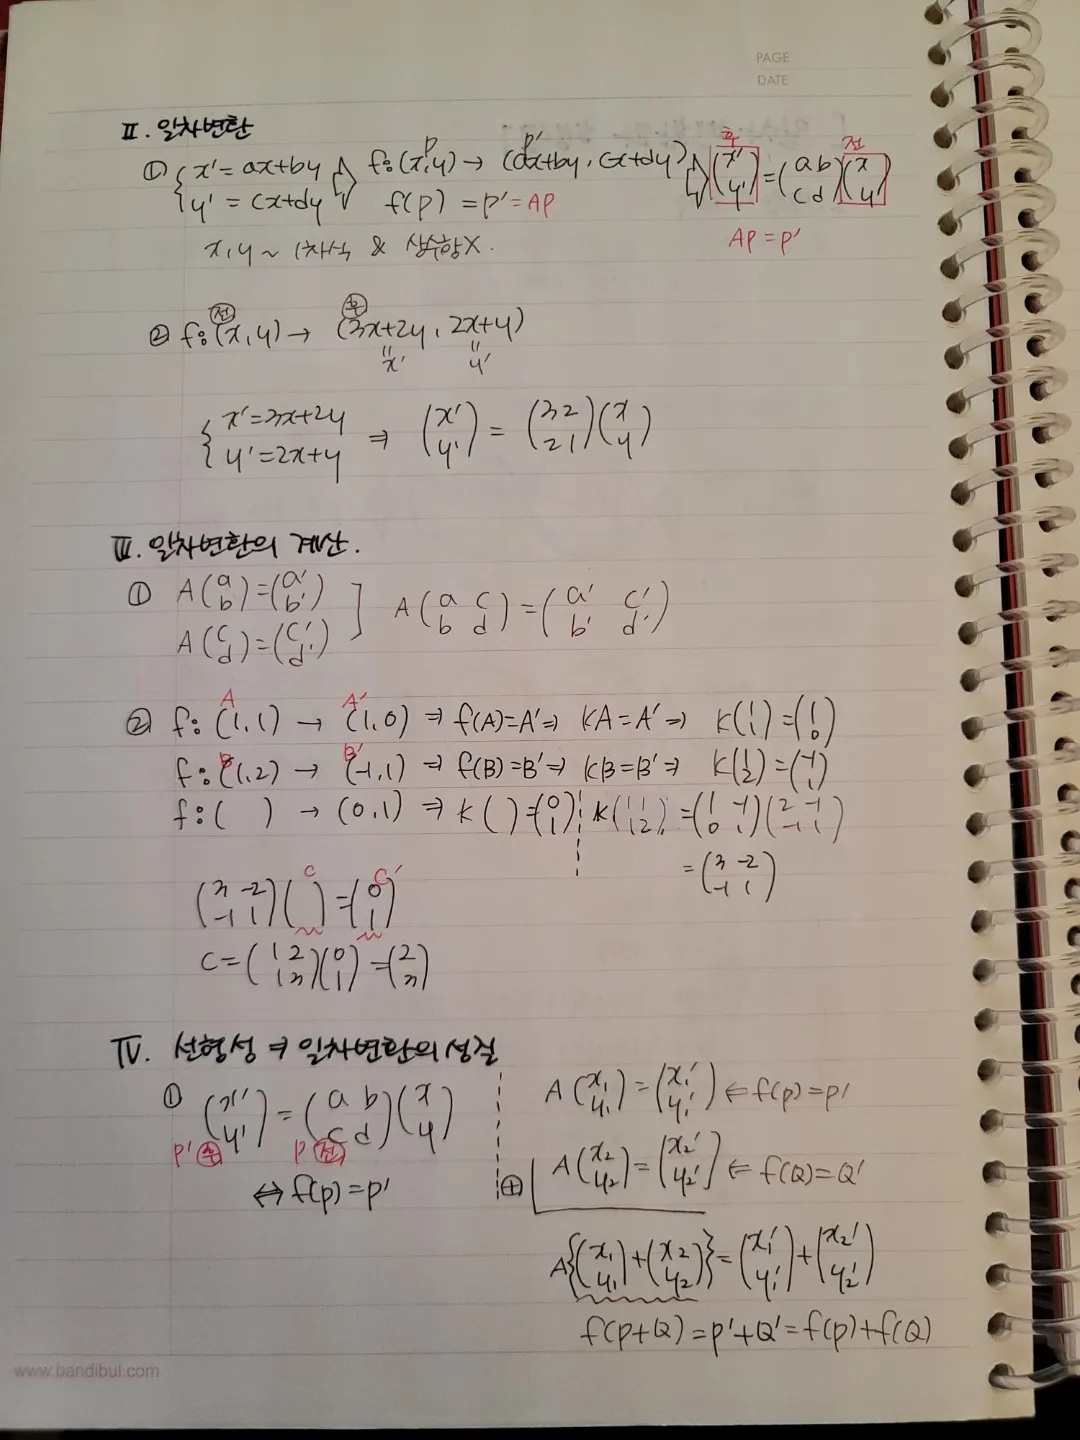 PAGE
DATE
II. 일차변환
① { x' = ax+by ⇒ f: (x,y) → (ax+by, cx+dy) ⇒ (x' y') = (a b c d)(x y)
y' = cx+dy f(p) = p' = Ap
p p' 후 전
x,y ~ 1차식 & 상수항X.
Ap = p'
전 후
② f: (x,y) → (3x+2y, 2x+y)
" x' " y'
{ x'=3x+2y y'=2x+y ⇒ (x' y') = (3 2 2 1)(x y)
III. 일차변환의 계산.
① A(a b)=(a' b') ] A(a c b d)=(a' c' b' d')
A(c d)=(c' d')
A A'
② f: (1,1) → (1,0) ⇒ f(A)=A' ⇒ KA=A' ⇒ K(1 1)=(1 0)
B B'
f: (1,2) → (-1,1) ⇒ f(B)=B' ⇒ KB=B' ⇒ K(1 2)=(-1 1)
f: ( ) → (0,1) ⇒ K( )=(0 1) K(1 1 1 2)=(1 -1 0 1)(2 -1 -1 1)
=(3 -2 -1 1)
C C'
(3 -2 -1 1)( )=(0 1)
C=(1 2 1 3)(0 1)=(2 3)
IV. 선형성 ⇒ 일차변환의 성질
① (x' y') = (a b c d)(x y)
p' 후 p 전
⇔ f(p)=p'
A(x₁ y₁)=(x₁' y₁') ⇐ f(p)=p'
⊕ A(x₂ y₂)=(x₂' y₂') ⇐ f(Q)=Q'
A{(x₁ y₁)+(x₂ y₂)}=(x₁' y₁')+(x₂' y₂')
f(p+Q)=p'+Q'=f(p)+f(Q)
www.bandibul.com